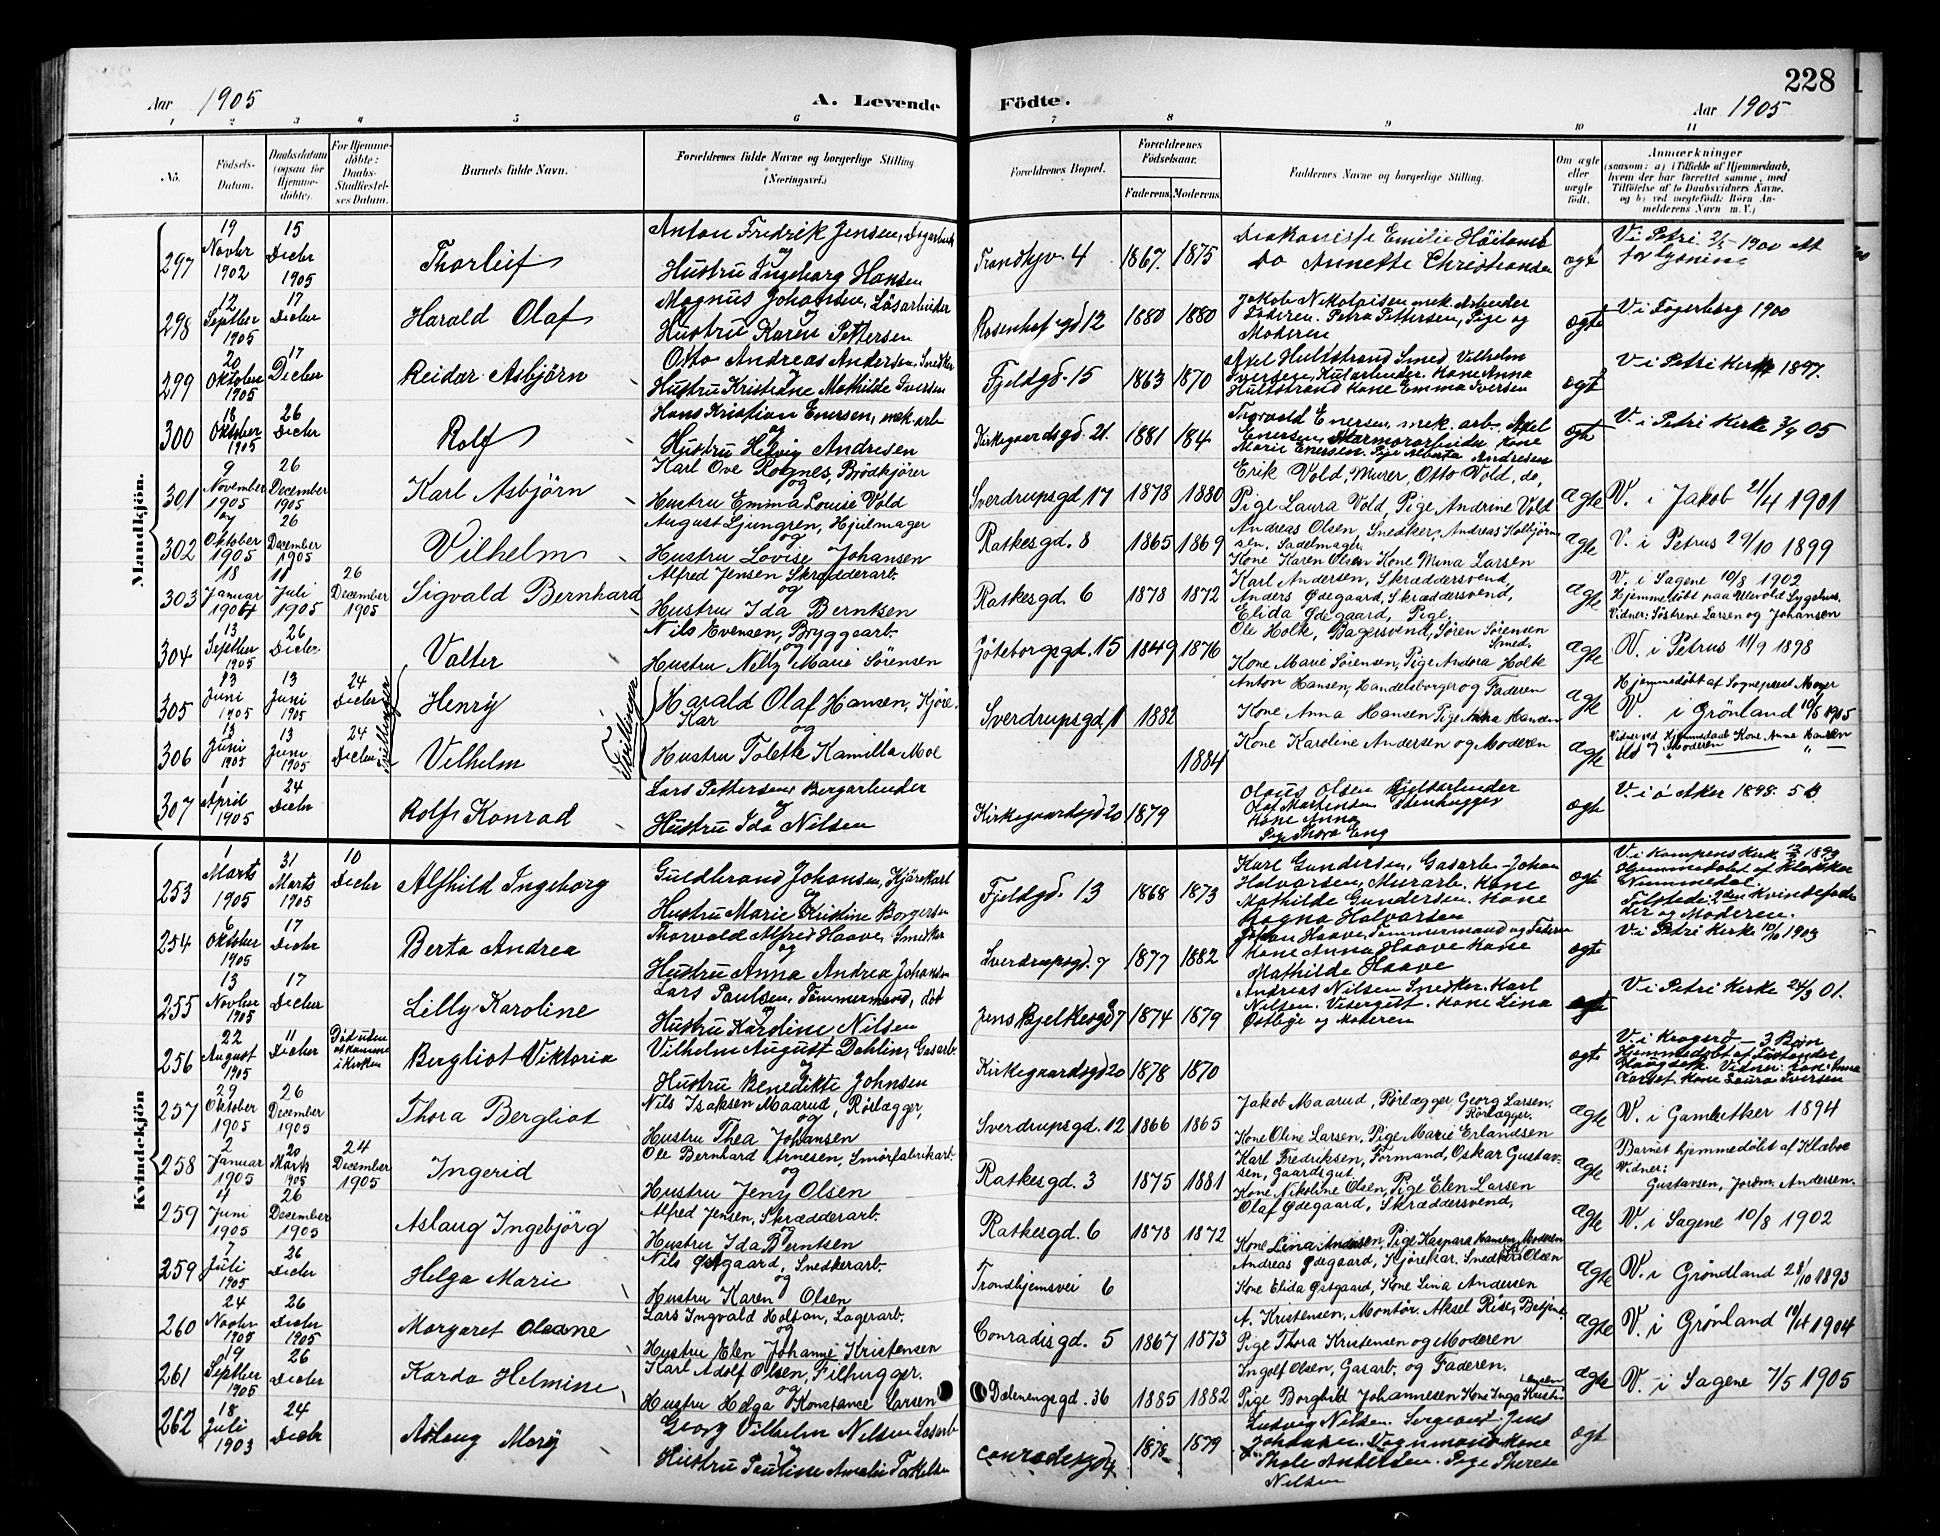 228
Aar 1905
A. Levende Födte.
Aar 1905
1 2 3 4 5 6 7 8 9 10 11
No.
Födsels-Datum.
Daabsdatum (ogsaa for Hjemmedöbte).
For Hjemmedöbte: Daabs-Stadfæstelses Datum.
Barnets fulde Navn.
Forældrenes fulde Navne og borgerlige Stilling (Næringsvei).
Forældrenes Bopæl.
Forældrenes Födselsaar.
Faderens. Moderens.
Faddernes Navne og borgerlige Stilling.
Om ægte eller uægte födt.
Anmærkninger
(saasom: a) i Tilfælde af Hjemmedaab, hvem der har forrettet samme, med Tilföielse af to Daabsvidners Navne. og b) ved uægtefödte Börn Anmelderens Navn m. V.)
Mandkjön.
297 19 Novbr 1902 15 Decbr 1905 Thorleif
Anton Fredrik Jensen, Dagarbeid
og
Hustru Ingeborg Hansen
Trondhjv. 4 1867. 1875
Diakonisse Emilie
Do Annette Christiansen
ægt
V. i Petri 2/5 1900
298 12 Septber 1905 17 Decbr Harald Olaf
Magnus Johansen, Løsarbeider
og
Hustru Karen Pettersen
Rosenhofgd 12 1880 1880
Jakob Nikolaisen mek. Arbeider
Faderen. Petra Pettersen, Pige og
Moderen
ægte
V. i Fagerborg 1900
299 20 Oktober 1905 17 Decber Reidar Asbjörn
Otto Andreas Andersen, Snedker
og
Hustru Kristiane Mathilde Iversen
Fjeldgd. 15 1863 1870
Axel Hultstrand Smed, Vilhelm
Iversen, Kone Anna
Hultstrand Kone Emma Iversen
ægt
V. i Petri Kirke 1897.
300 18 Oktober 1905 26 Decbr Rolf
Hans Kristian Enersen, mek. arb
og
Hustru Helvig Andresen
Kirkegaardsgd. 21. 1881 184
Thorvald Enersen, mek. arb. Axel
Enersen, Marmorarbeider, Kone
Marie Enersen. Pige Alberta Andresen
ægt
V. i Petri Kirke 3/9 05
301 9 November 1905 26 December 1905 Karl Asbjörn
Karl Ove Rognes, Brödkjörer
og
Hustru Emma Louise Vold
Sverdrupsgd 17 1878 1880
Erik Vold, Murer, Otto Vold, do,
Pige Laura Vold, Pige Andrine Vold
Ægte
V. i Jakob 21/4 1901
302 7 Oktober 1905 26 December 1905 Vilhelm
August Ljungren, Hjulmager
og
Hustru Lovise Johansen
Ratkesgd. 8 1865 1869
Andreas Olsen, Snedker, Andreas Kolbjørnsen, Sadelmager
Kone Karen Olsen Kone Mina Larsen
Ægte
V. i Petrus 29/10 1899
303 18 Januar 1904 11 Juli 1905 26 December 1905 Sigvald Bernhard
Alfred Jensen Skrædderarb.
og
Hustru Ida Berntsen
Ratkesgd. 6 1878 1872
Karl Andersen, Skræddersvend,
Anders Ødegaard, Skræddersvend,
Elida Ødegaard, Pige,
Ægte
V. i Sagene 10/8 1902
Hjemmedöbt paa Ullevold Sygehus.
Vidner: Söstrene Larsen og Johansen
304 13 Septber 1905 26 Decbr Valter
Nils Evensen, Bryggearb.
og
Hustru Nelly Marie Sørensen
Göteborgsgd. 15 1849 1876
Ole Holk, Bagersvend, Sören Sörensen
Smed,
Kone Marie Sörensen, Pige Andora Holtk
Ægte
V. i Petrus 11/9 1898
305 13 Juni 1905 13 Juni 1905 24 Decber Henry
Tvillinger
Harald Olaf Hansen, Kjörekar
og
Sverdrupsgd, 1 1882
Anton Hansen, Handelsborger og Faderen
Kone Anna Hansen Pige Anna Hansen
Ægte
Hjemmedöbt af Sognepræst Meyer
V. i Grönland 10/5 1905
306 13 Juni 1905 13 Juni 1905 24 Decber Vilhelm
Hustru Tolette Kamilla Moe
1884
Kone Karoline Andersen og Moderen
Ægte
Vidner ved Hjemmedaab Kone Anna Hansen
og Moderen
307 1 April 1905 24 Decbr Rolf Konrad
Lars Pettersen Bergarbeider
og
Hustru Ida Nilsen
Kirkegaardsgd 20 1879
Olaus Olsen
Olaf Martinsen Stenhugger
Kone Anna
Pige Thora Eng
ægt
V. i ö Aker 1898.
Kvindekjön
253 1 Marts 1905 31 Marts 1905 10 Decbr Alfhild Ingeborg
Guldbrand Johansen, Kjörekarl
og
Hustru Marie Kristine Borgersen
Fjeldgd. 13 1868 1873
Karl Gundersen, Gasarb. Johan
Halvorsen, Murarb. Kone
Mathilde Gundersen. Kone
Ragna Halvorsen
ægt
V. i Kampens Kirk 1899
Hjemmedöbt af Klokker
Nummedal.
Moderen.
254 6 Oktober 1905 17 Decbr Berta Andrea
Thorvald Alfred Haave, Smedker
og
Hustru Anna Andrea Johansen
Sverdrupsgd. 7 1877 1882
Johan Haave, Tömmermand og Faderen
Kone Anna Haave Kone
Mathilde Haave
ægt
V. i Petri Kirke 1903
255 13 Novber 1905 17 Decber Lilly Karoline
Lars Paulsen, Tömmermand, död
og
Hustru Karoline Nilsen
Jens Bjelkesgd 7 1874 1879
Andreas Nilsen Snedker. Karl
Nilsen. Visergut. Kone Lina
Östbye og Moderen
ægt
V. i Petri Kirke 24/3 01.
256 22 August 1905 11 Decber Död uden at komme i Kirken Bergliot Viktoria
Vilhelm August Dahlin, Gasarb
og
Hustru Benedikte Johnsen
Kirkegaardsgd 20 1878 1870
ægt
V. i Kragerö – 3 Börn
Hjemmedöbt af
Vidner: Kone
Kone Laura Iversen
257 29 Oktober 1905 26 December 1905 Thora Bergliot
Nils Isaksen Maarud, Rörlægger,
og
Hustru Thea Johansen
Sverdrupsgd. 12 1866 1865
Jakob Maarud, Rörlægger, Georg Larsen,
Rörlægger.
Kone Oline Larsen, Pige Marie Erlandsen
Ægte
V. i Gamle Aker 1894
258 2 Januar 1905 20 Marts 1905 24 December 1905 Ingerid
Ole Bernhard Arnesen, Smörfabrikarb.
og
Hustru Jeny Olsen
Ratkesgd. 3 1875 1881
Karl Fredriksen, Formand, Oskar Gustavsen, Gaardsgut,
Kone Nikoline Olsen, Pige Elen Larsen
Ægte
Barnet hjemmedöbt af Klaboe
Vidner:
Gustavsen, Jordm. Andersen.
259 4 Juni 1905 26 December 1905 Aslaug Ingebjörg
Alfred Jensen, Skrædderarb.
og
Hustru Ida Berntsen
Ratkesgd. 6 1878 1872
Olaf Ødegaard, Skræddersvend,
Kone Lina Andersen, Pige Kaspara Hansen, Moderen
Ægte
V. i Sagene 10/8 1902
259 7 Juli 1905 26 Decbr Helga Marie
Nils Østgaard, Snedkerarb.
og
Hustru Karen Olsen
Trondhjemsvei 6
Andreas Ødegaard, Kjörekar, Snedker Olsen
Kone Elida Østgaard, Kone Lina Andersen
Ægte
V. i Gröndland 28/10 1893
260 24 Novbr 1905 26 Decbr 1905 Margaret Oleane
Lars Ingvald Holtan, Lagerarb.
og
Hustru Elen Johanne Kristensen
Conradisgd. 5 1867 1873
A. Kristensen, Montör, Aksel Riise, Betjent,
Pige Thora Kristensen og Moderen
Ægte
V. i Grönland 10/4 1904
261 19 Septber 1905 26 Decbr Karda Helmine
Karl Adolf Olsen, Filhugger.
og
Hustru Helga Konstance Larsen
Dælenengsgd. 36 1885 1882
Ingolf Olsen, Gasarb. og Faderen.
Pige Borghild Johannesen Kone Inga
Ægte
V. i Sagene 7/5 1905
262 18 Juli 1903 24 Decbr Aslaug Mary
Georg Vilhelm Nilsen Løsarb
og
Hustru Pauline Amalie Torkelsen
Conradesgd 4 1878 1879
Ludvig Nilsen. Sergeant. Jens
Johansen. Vognmand Kone
Thale Andersen. Pige Therese
Nilsen
ægt